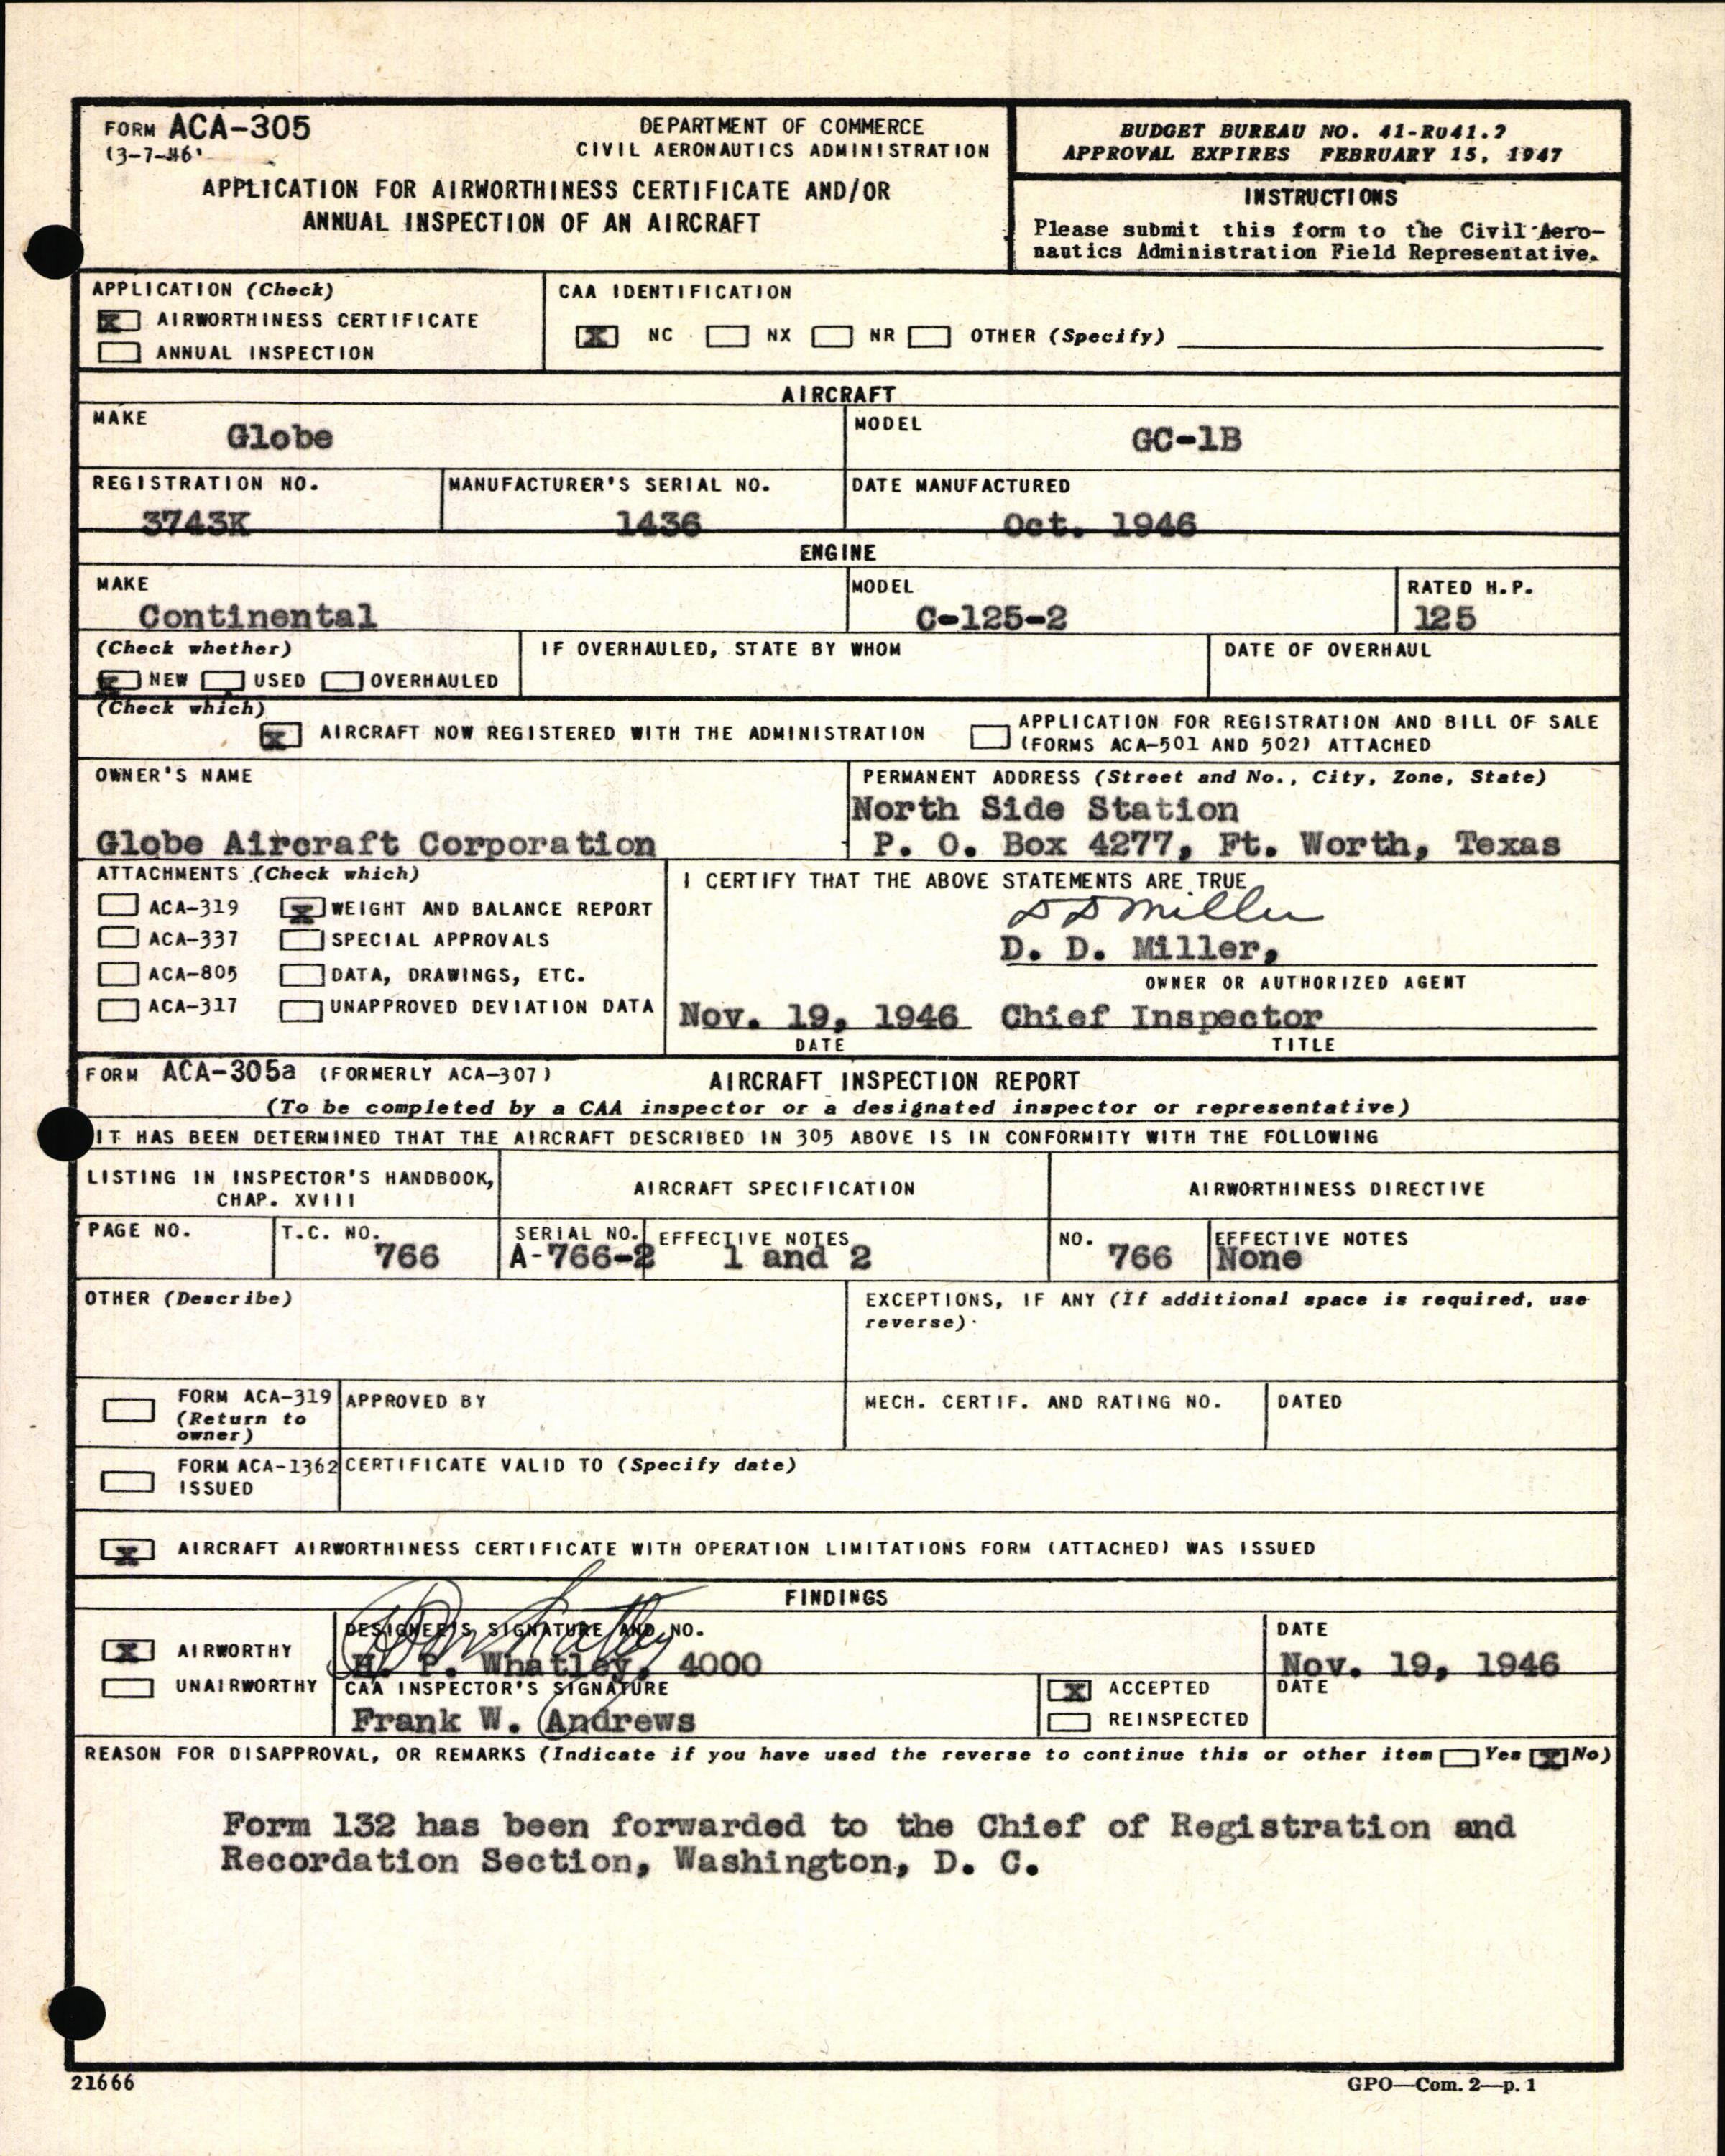 FORM ACA-305
(3-7-46)
DEPARTMENT OF COMMERCE
CIVIL AERONAUTICS ADMINISTRATION
APPLICATION FOR AIRWORTHINESS CERTIFICATE AND/OR
ANNUAL INSPECTION OF AN AIRCRAFT
BUDGET BUREAU NO. 41-R041.2
APPROVAL EXPIRES FEBRUARY 15, 1947
INSTRUCTIONS
Please submit this form to the Civil Aero-
nautics Administration Field Representative.
APPLICATION (Check)
X AIRWORTHINESS CERTIFICATE
ANNUAL INSPECTION
CAA IDENTIFICATION
X NC NX NR OTHER (Specify)
AIRCRAFT
MAKE
Globe
MODEL
GC-1B
REGISTRATION NO.
3743K
MANUFACTURER'S SERIAL NO.
1436
DATE MANUFACTURED
Oct. 1946
ENGINE
MAKE
Continental
MODEL
C-125-2
RATED H.P.
125
(Check whether)
X NEW USED OVERHAULED
IF OVERHAULED, STATE BY WHOM
DATE OF OVERHAUL
(Check which)
X AIRCRAFT NOW REGISTERED WITH THE ADMINISTRATION
APPLICATION FOR REGISTRATION AND BILL OF SALE
(FORMS ACA-501 AND 502) ATTACHED
OWNER'S NAME
Globe Aircraft Corporation
PERMANENT ADDRESS (Street and No., City, Zone, State)
North Side Station
P. O. Box 4277, Ft. Worth, Texas
ATTACHMENTS (Check which)
ACA-319 X WEIGHT AND BALANCE REPORT
ACA-337 SPECIAL APPROVALS
ACA-805 DATA, DRAWINGS, ETC.
ACA-317 UNAPPROVED DEVIATION DATA
I CERTIFY THAT THE ABOVE STATEMENTS ARE TRUE
D D Miller
D. D. Miller,
OWNER OR AUTHORIZED AGENT
Nov. 19, 1946 Chief Inspector
DATE TITLE
FORM ACA-305a (FORMERLY ACA-307)
AIRCRAFT INSPECTION REPORT
(To be completed by a CAA inspector or a designated inspector or representative)
IT HAS BEEN DETERMINED THAT THE AIRCRAFT DESCRIBED IN 305 ABOVE IS IN CONFORMITY WITH THE FOLLOWING
LISTING IN INSPECTOR'S HANDBOOK,
CHAP. XVIII
AIRCRAFT SPECIFICATION
AIRWORTHINESS DIRECTIVE
PAGE NO.
T.C. NO.
766
SERIAL NO.
A-766-2
EFFECTIVE NOTES
1 and 2
NO.
766
EFFECTIVE NOTES
None
OTHER (Describe)
EXCEPTIONS, IF ANY (If additional space is required, use
reverse)
FORM ACA-319
(Return to
owner)
APPROVED BY
MECH. CERTIF. AND RATING NO.
DATED
FORM ACA-1362
ISSUED
CERTIFICATE VALID TO (Specify date)
X AIRCRAFT AIRWORTHINESS CERTIFICATE WITH OPERATION LIMITATIONS FORM (ATTACHED) WAS ISSUED
FINDINGS
X AIRWORTHY
UNAIRWORTHY
DESIGNEE'S SIGNATURE AND NO.
H. P. Whatley, 4000
DATE
Nov. 19, 1946
CAA INSPECTOR'S SIGNATURE
Frank W. Andrews
X ACCEPTED
REINSPECTED
DATE
REASON FOR DISAPPROVAL, OR REMARKS (Indicate if you have used the reverse to continue this or other item Yes X No)
Form 132 has been forwarded to the Chief of Registration and
Recordation Section, Washington, D. C.
21666
GPO—Com. 2—p. 1